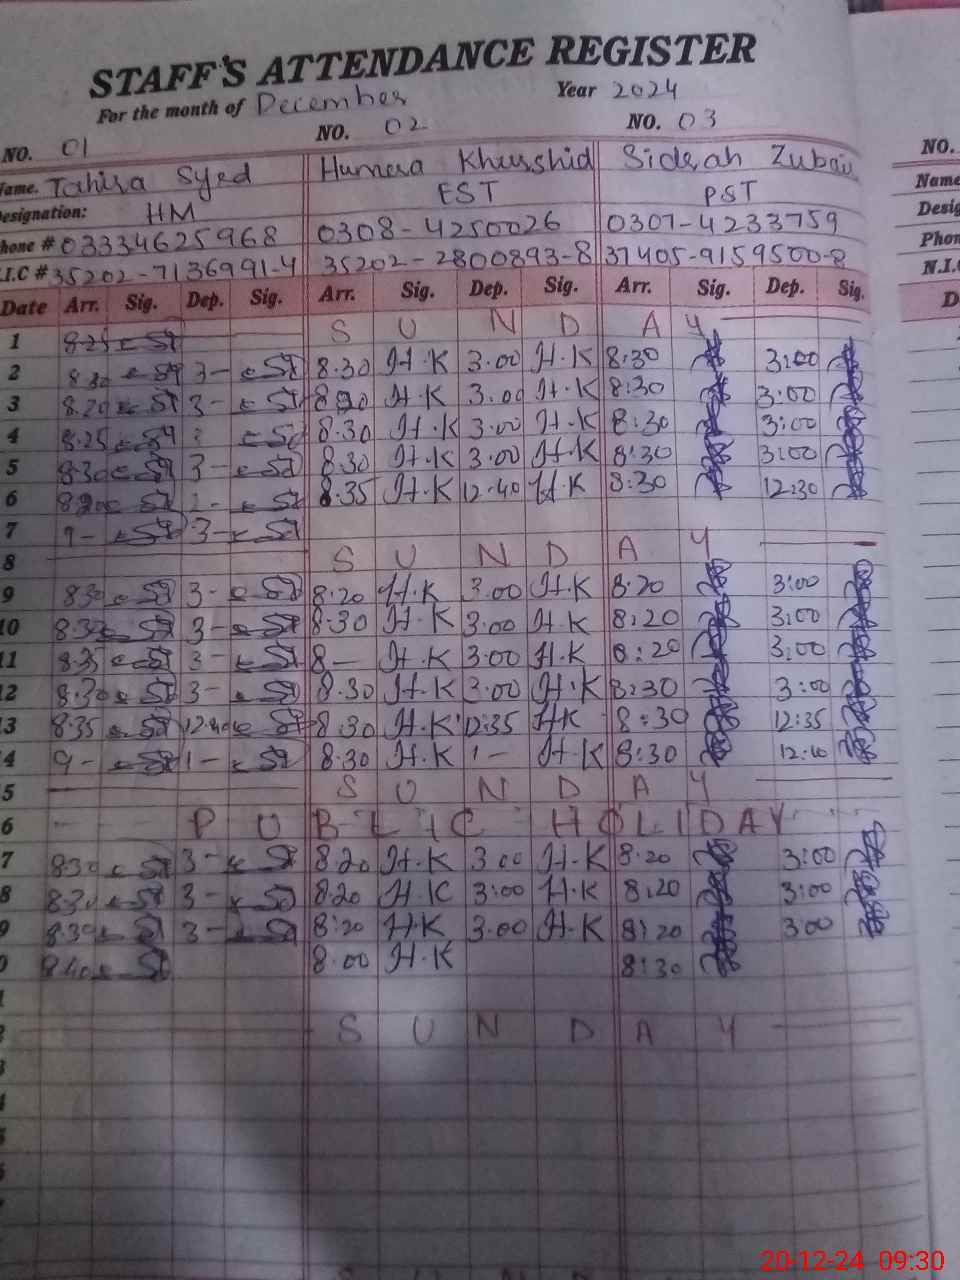 STAFF'S ATTENDANCE REGISTER
For the month of December Year 2024
NO. 01 NO. 02 NO. 03 NO.
Name. Tahira Syed Humera Khurshid Sidrah Zubair Name
Designation: HM EST PST Desig
Phone # 03334625968 0308-4250026 0307-4233759 Phon
I.C # 35202-7136991-4 35202-2800893-8 37405-9159500-8 N.I.C
Date Arr. Sig. Dep. Sig. Arr. Sig. Dep. Sig. Arr. Sig. Dep. Sig. D
1 8.25 SUNDAY
2 8.30 3- 8.30 H.K 3.00 H.K 8:30 3:00
3 8.20 3- H.K 3.00 H.K 8:30 3:00
4 8.25 8.30 H.K 3.00 H.K 8:30 3:00
5 8.30 3- 8.30 H.K 3.00 H.K 8:30 3:00
6 8.35 H.K 12.40 H.K 8:30 12:30
7 9- 3-
8 SUNDAY
9 8.30 3- 8:20 H.K 3.00 H.K 8:20 3:00
10 8.30 3- 8.30 H.K 3.00 H.K 8:20 3:00
11 8.35 3- 8- H.K 3.00 H.K 8:20 3:00
12 8.30 3- 8.30 H.K 3.00 H.K 8:30 3:00
13 8.35 12.40 8.30 H.K 12:35 HK 8:30 12:35
4 9- 1- 8.30 H.K 1- H.K 8:30
5 SUNDAY
6 PUBLIC HOLIDAY
7 8.30 3- 8.20 H.K 3.00 H.K 8.20 3:00
8 8.30 3- 8.20 H.K 3:00 H.K 8:20 3:00
9 8.30 3- 8:20 H.K 3.00 H.K 8:20 3:00
0 8.40 8.00 H.K 8:30
SUNDAY
20-12-24 09:30